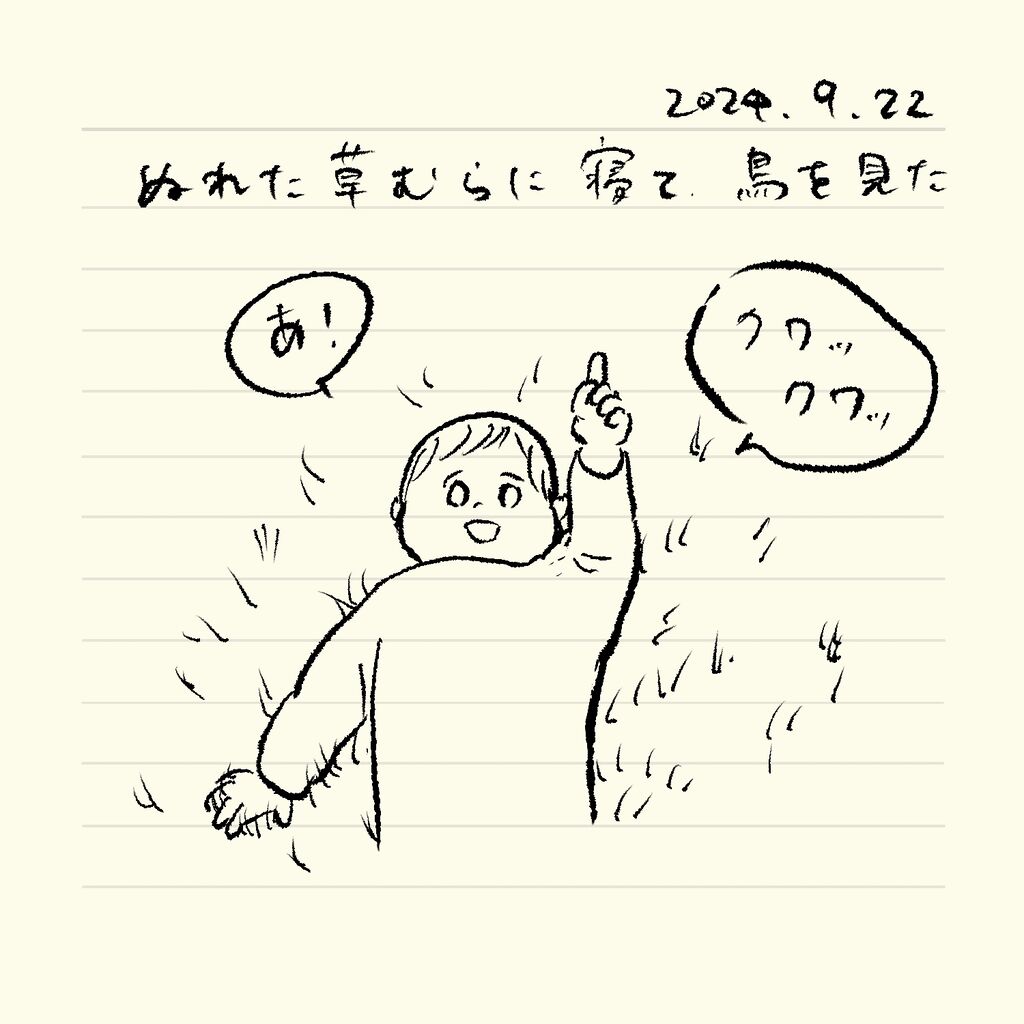 2024.9.22
ぬれた草むらに寝て、鳥を見た
あ!
クワッ
クワッ